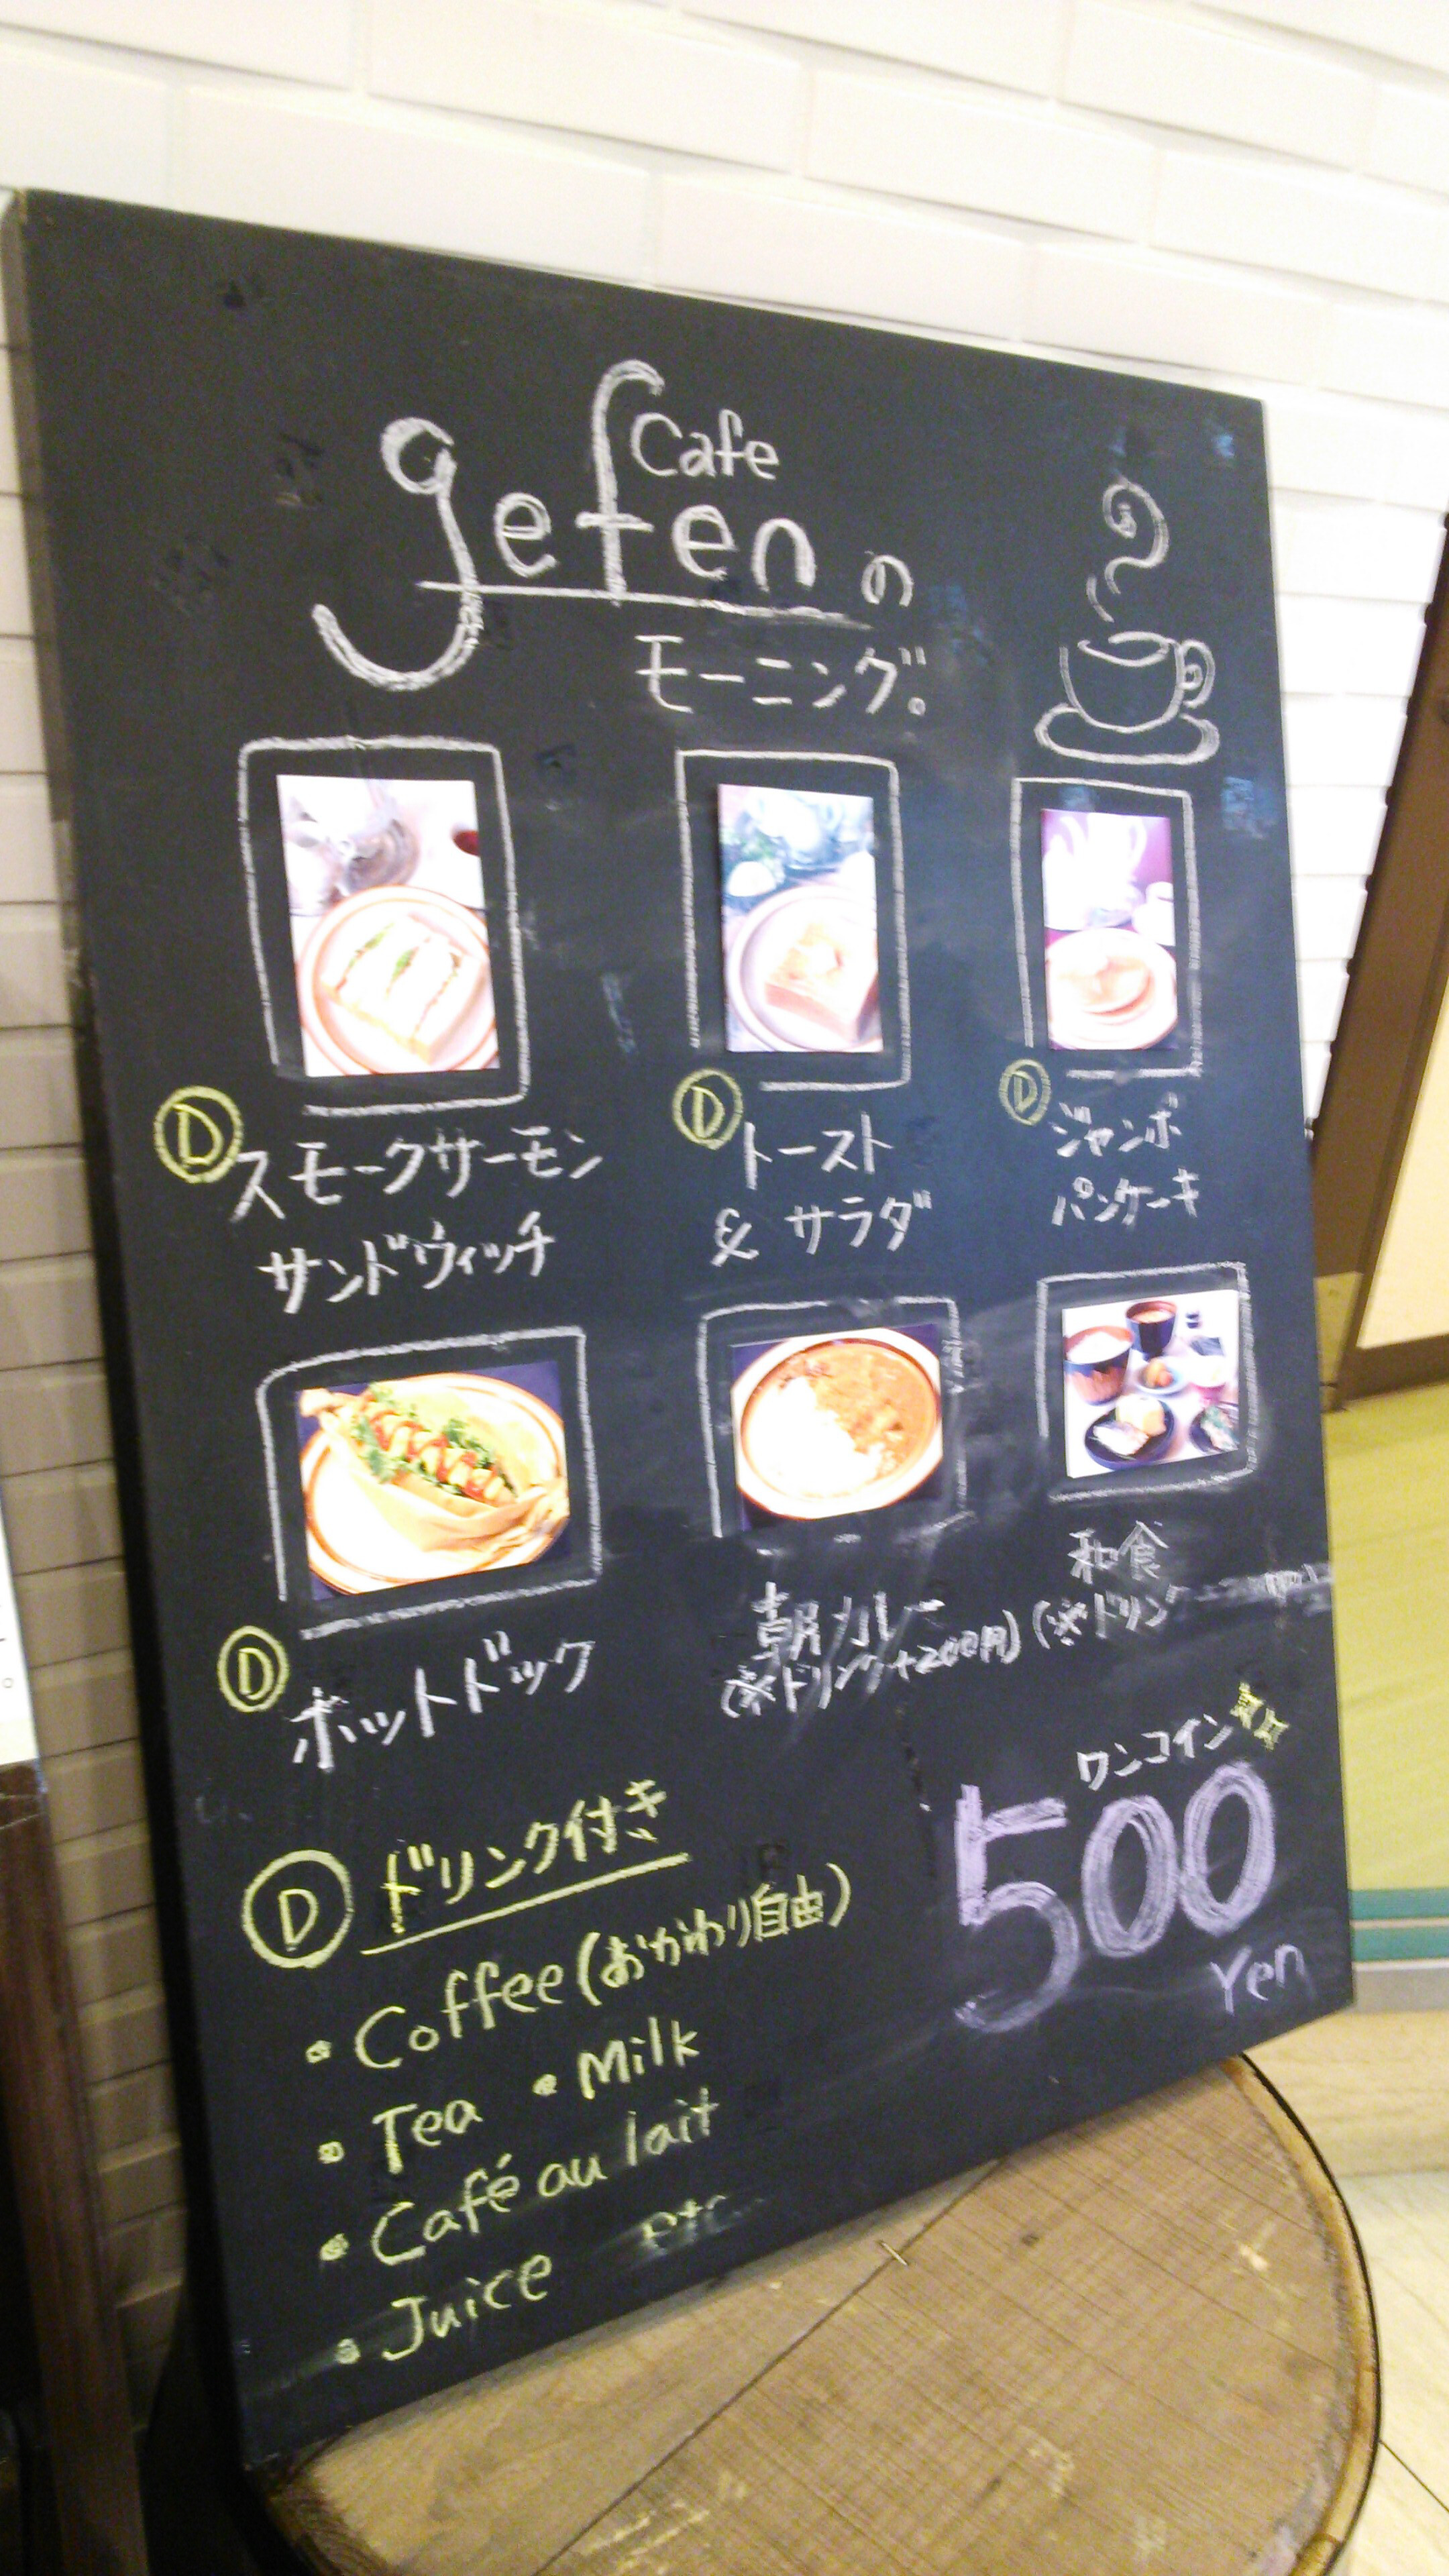 Cafe
gefenの
モーニング。
Ⓓスモークサーモン
サンドウィッチ
Ⓓトースト
& サラダ
Ⓓジャンボ
パンケーキ
Ⓓホットドック
朝カレー
(※ドリンク+200円)
和食
(※ドリンク
ワンコイン
500
Yen
Ⓓ ドリンク付き
・Coffee(おかわり自由)
・Tea ・Milk
・Café au lait
・Juice etc